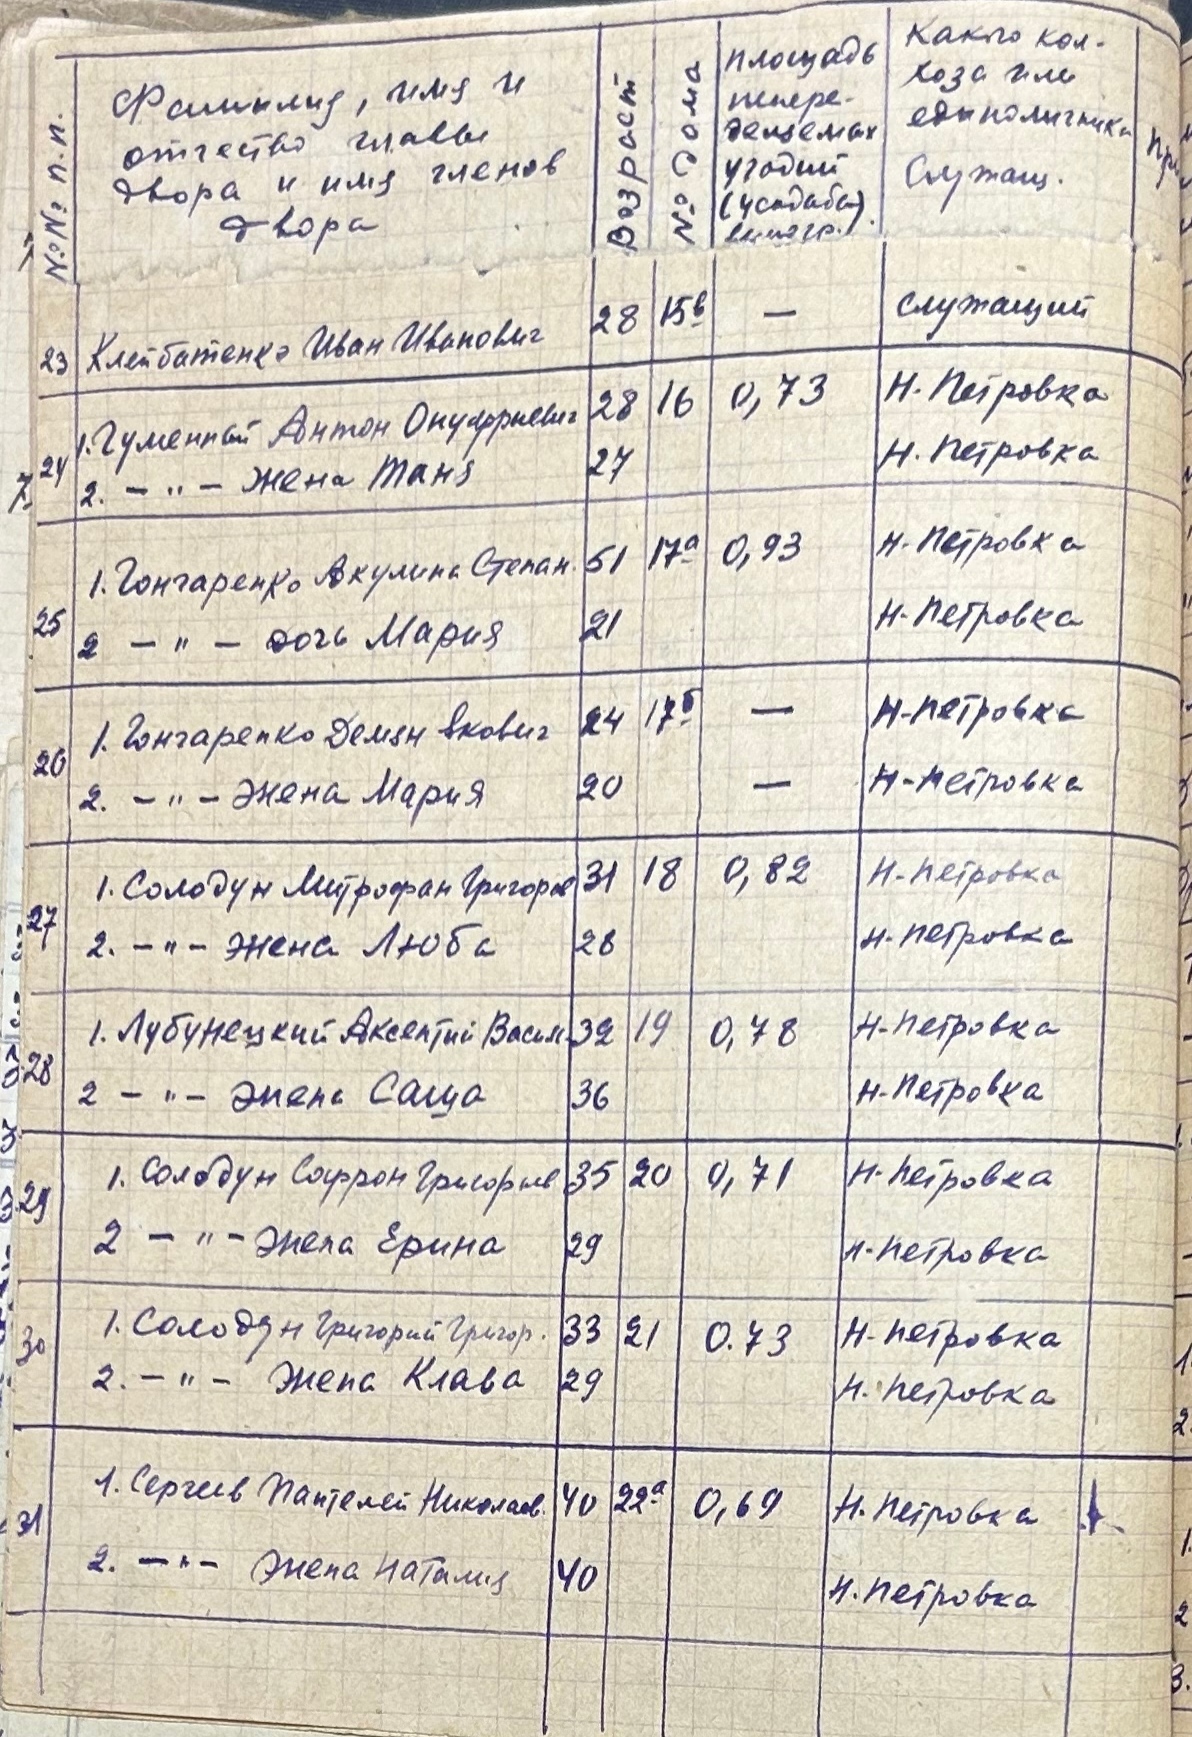 №№ п.п.
Фамилия, имя и
отчество главы
двора и имя членов
двора
Возраст
№ дома
площадь
угодий
(усадьба)
Какого кол-
хоза или
единоличника
Служащ.
23 Иван Иванович 28 15в — служащий
24 1. Гуменный Антон Онуфриевич 28 16 0,73 Н-Петровка
2. — " — жена Таня 27 Н. Петровка
25 1. Гончаренко Акулина Степан. 51 17а 0,93 Н-Петровка
2 — " — дочь Мария 21 Н-Петровка
26 1. Гончаренко Демян 24 17б — Н-Петровка
2. — " — жена Мария 20 — Н-Петровка
27 1. Солодун Митрофан Григорьев 31 18 0,82 Н-Петровка
2. — " — жена Люба 28 Н-Петровка
28 1. Лубунецкий Аксентий Васил. 32 19 0,78 Н-Петровка
2 — " — жена Саша 36 Н-Петровка
29 1. Солодун Софрон Григорьев 35 20 0,71 Н-Петровка
2 — " — жена Ерина 29 Н-Петровка
30 1. Солодун Григорий Григор. 33 21 0.73 Н-Петровка
2. — " — жена Клава 29 Н. Петровка
31 1. Сергеев Пантелей Николаев. 40 22а 0,69 Н. Петровка
2. — " — жена Наталия 40 Н. Петровка